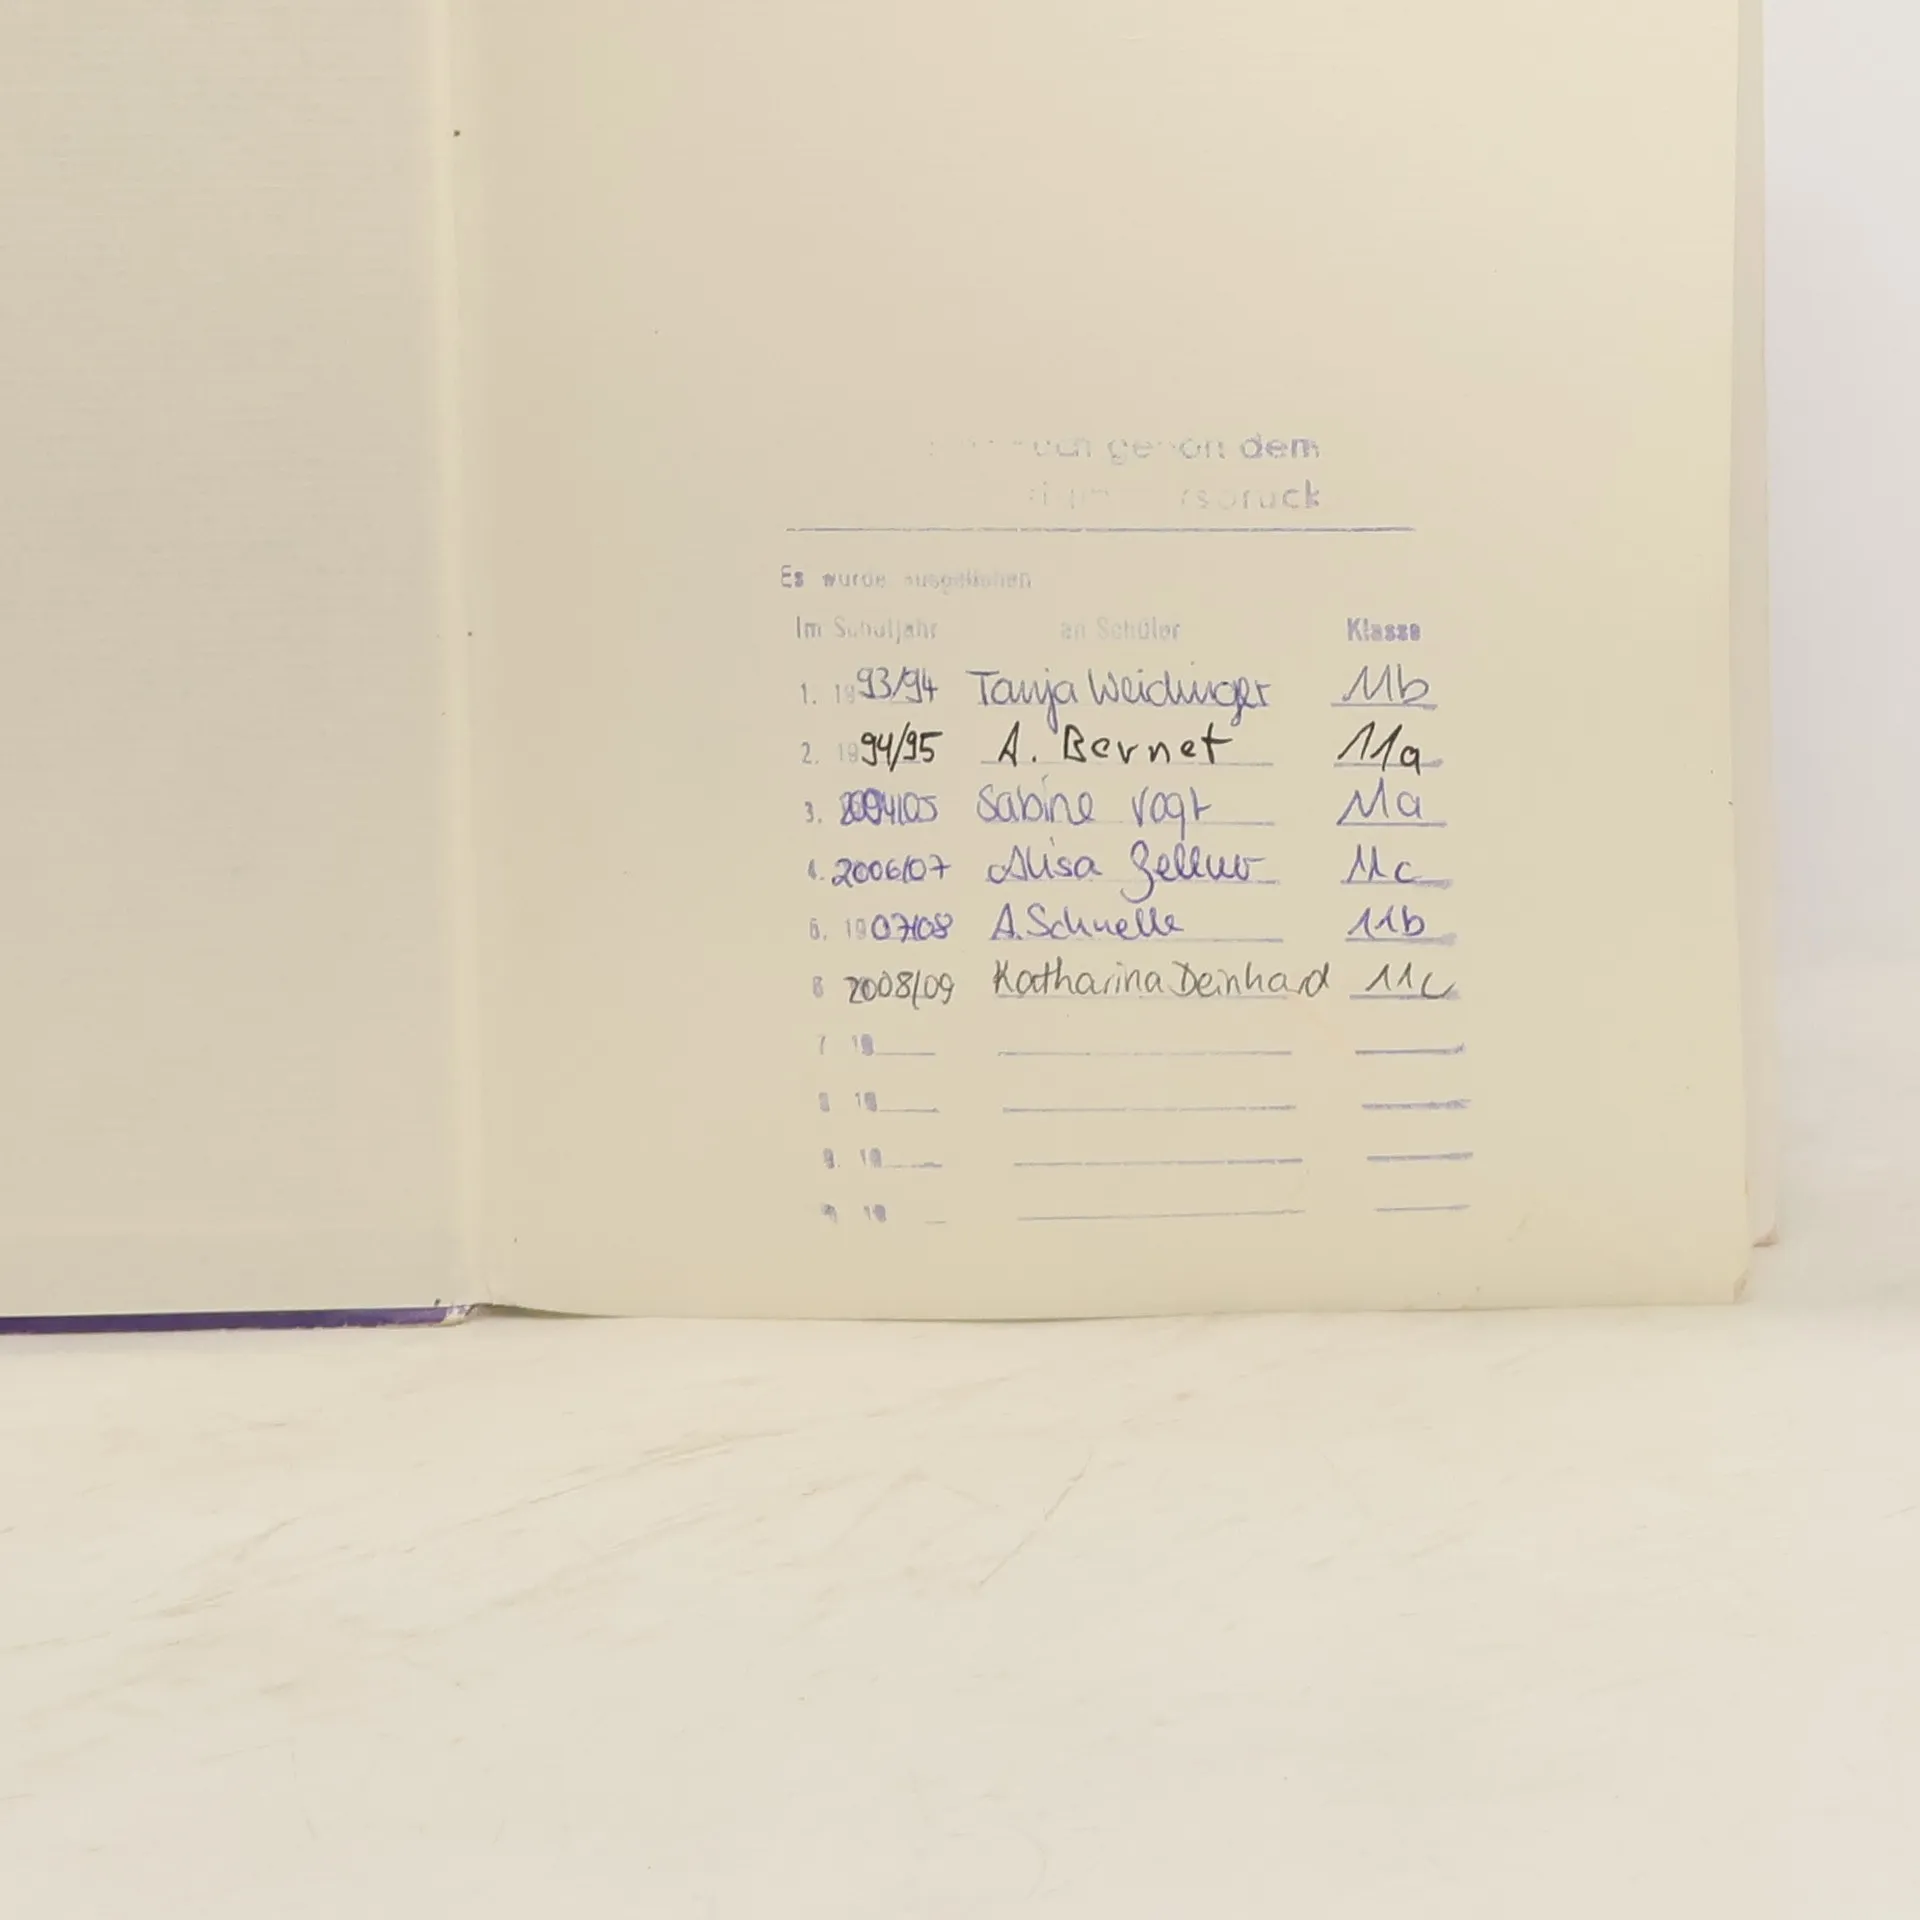 gehört dem
Es wurde ausgeliehen
Im Schuljahr an Schüler Klasse
1. 1993/94 Tanja Weidinger 11b
2. 1994/95 A. Bernet 11a
3. 2004/05 Sabine Vogt 11a
4. 2006/07 Alisa Zellner 11c
5. 1907/08 A. Schnelle 11b
6 2008/09 Katharina Deinhard 11c
7 19
8 19
9. 19
19